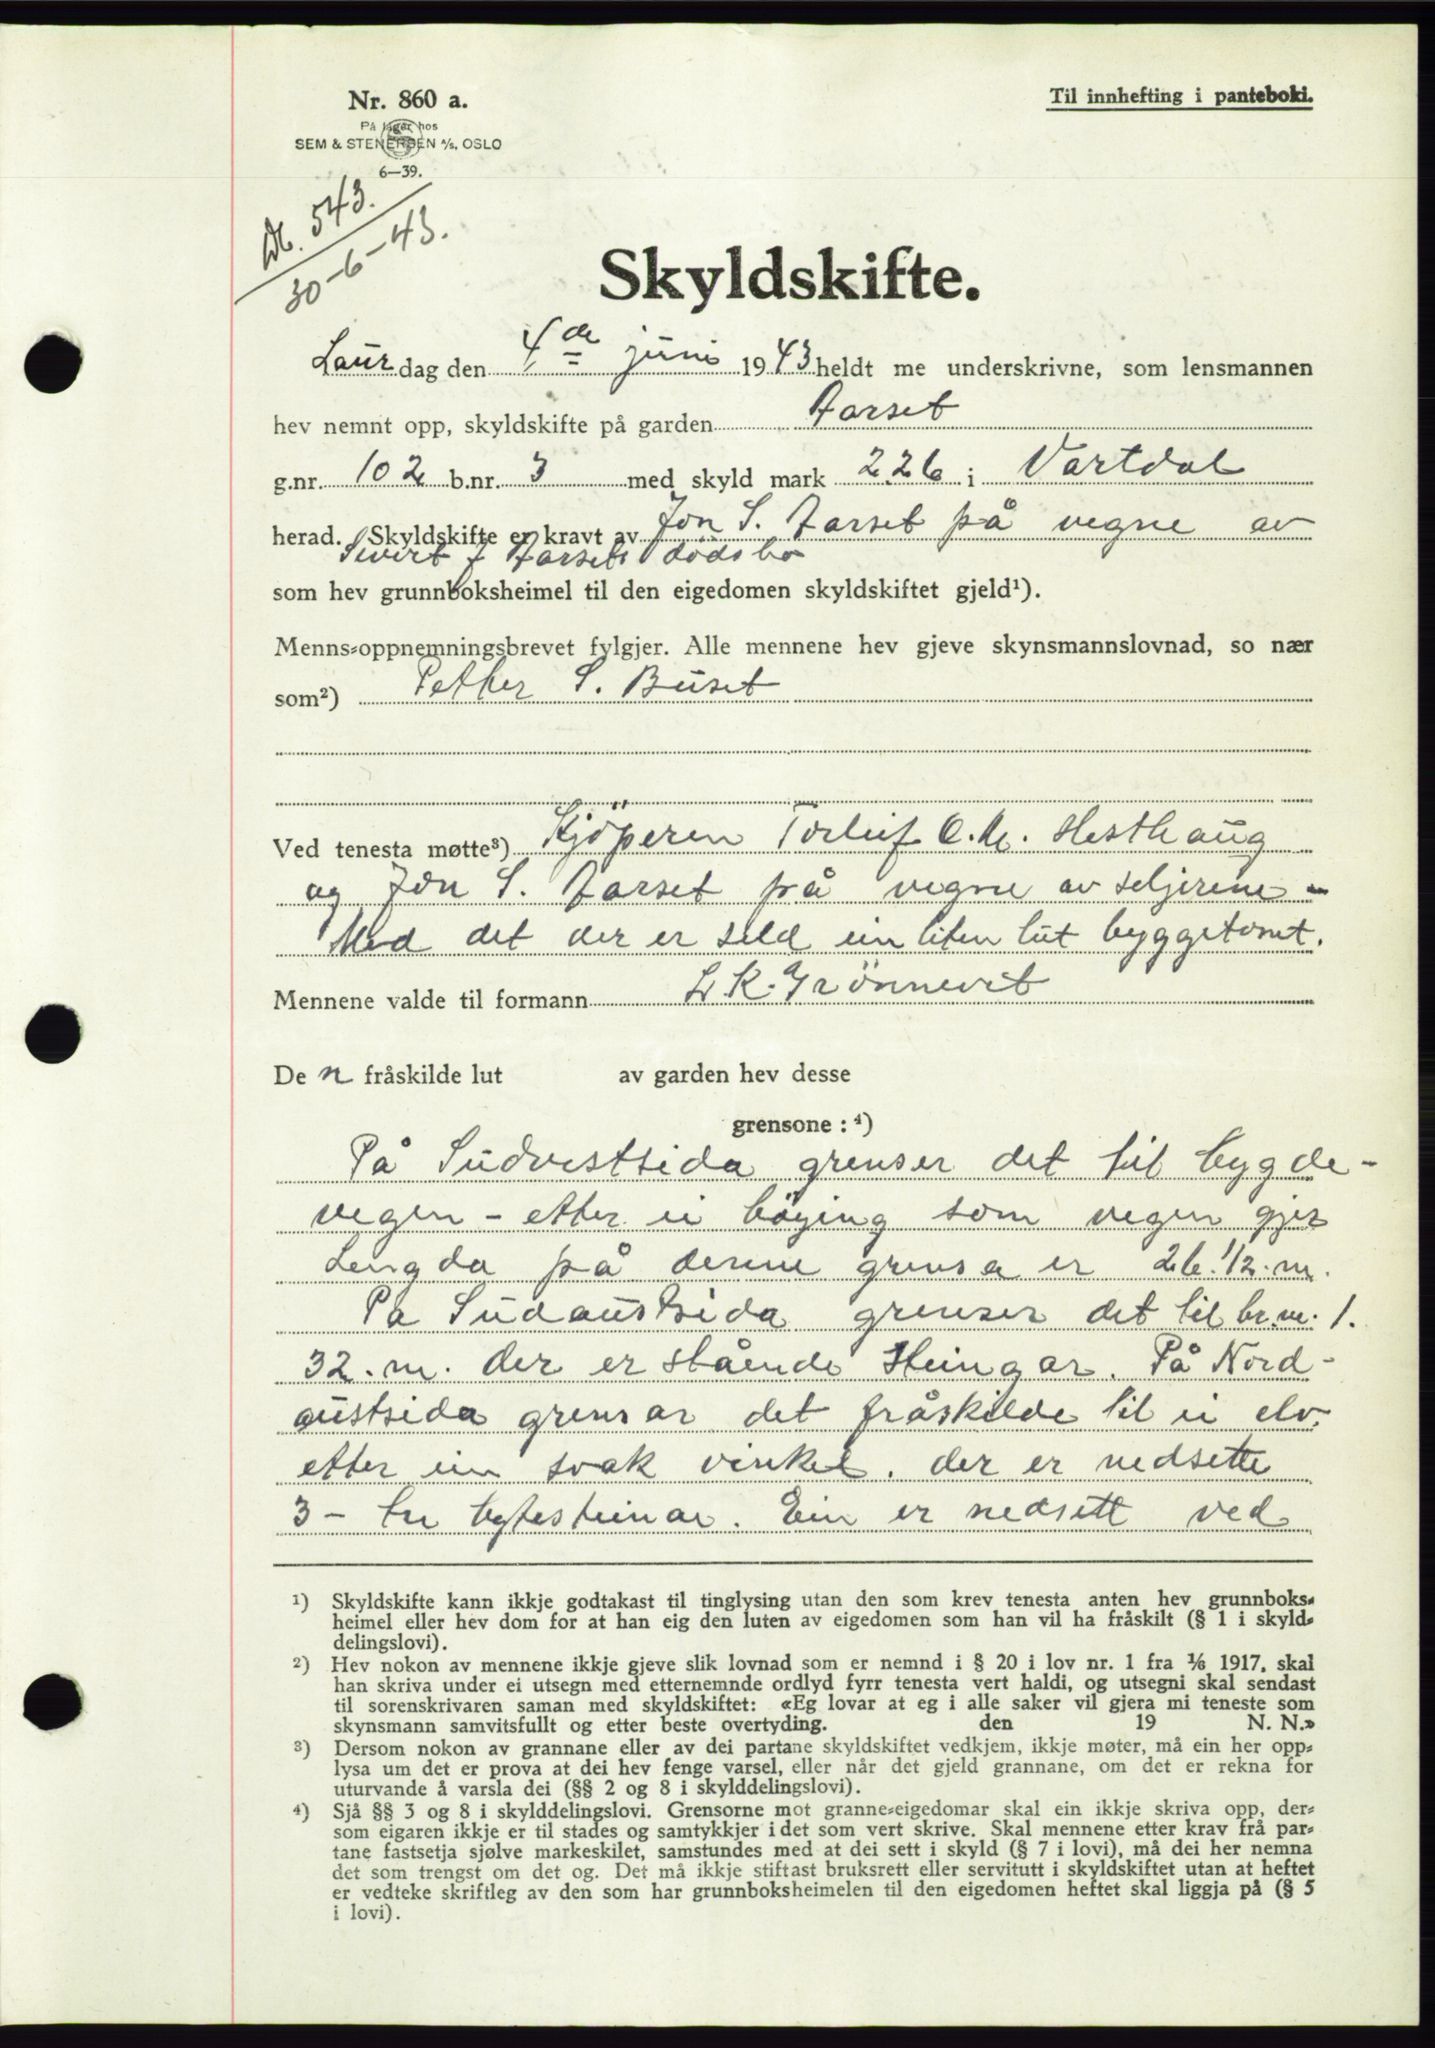 Nr. 860 a.
På lager hos
SEM & STENERSEN A/S, OSLO
6—39.
Til innhefting i panteboki.
Db. 543.
30-6-43.
Skyldskifte.
Laur dag den 4de juni 1943 heldt me underskrivne, som lensmannen
hev nemnt opp, skyldskifte på garden Aarset
g.nr. 102 b.nr. 3 med skyld mark 2.26 i Vartdal
herad. Skyldskifte er kravt av Jon S. Aarset på vegne av
Sivert J Aarsets dödsbo
som hev grunnboksheimel til den eigedomen skyldskiftet gjeld¹).
Menns-oppnemningsbrevet fylgjer. Alle mennene hev gjeve skynsmannslovnad, so nær
som²) Petter S. Buset
Ved tenesta møtte³) Kjöperen Torleif O. M. Hesthaug
og Jon S. Aarset på vegne av seljerene -
Med det der er seld ein liten lut byggetomt.
Mennene valde til formann L K. Grönnevet
De n fråskilde lut av garden hev desse
grensone : ⁴)
På Sudvestsida grenser det til bygde-
vegen - etter ei böying som vegen gjer
Lengda på denne grensa er 26.1/2. m.
På Sudaustsida grenser det til br.nr. 1.
32. m. der er stående Steingar. På Nord-
austsida grensar det fråskilde til ei elv.
etter ein svak vinkel. der er nedsette
3 - tre bytesteinar. Ein er nedsett ved
¹) Skyldskifte kann ikkje godtakast til tinglysing utan den som krev tenesta anten hev grunnboks-
heimel eller hev dom for at han eig den luten av eigedomen som han vil ha fråskilt (§ 1 i skyld-
delingslovi).
²) Hev nokon av mennene ikkje gjeve slik lovnad som er nemnd i § 20 i lov nr. 1 fra 1/6 1917, skal
han skriva under ei utsegn med etternemnde ordlyd fyrr tenesta vert haldi, og utsegni skal sendast
til sorenskrivaren saman med skyldskiftet: «Eg lovar at eg i alle saker vil gjera mi teneste som
skynsmann samvitsfullt og etter beste overtyding. den 19 N. N.»
³) Dersom nokon av grannane eller av dei partane skyldskiftet vedkjem, ikkje møter, må ein her opp-
lysa um det er prova at dei hev fenge varsel, eller når det gjeld grannane, om det er rekna for
uturvande å varsla dei (§§ 2 og 8 i skylddelingslovi).
⁴) Sjå §§ 3 og 8 i skylddelingslovi. Grensorne mot granne-eigedomar skal ein ikkje skriva opp, der-
som eigaren ikkje er til stades og samtykkjer i det som vert skrive. Skal mennene etter krav frå par-
tane fastsetja sjølve markeskilet, samstundes med at dei sett i skyld (§ 7 i lovi), må dei her nemna
det som trengst om det og. Det må ikkje stiftast bruksrett eller servitutt i skyldskiftet utan at heftet
er vedteke skriftleg av den som har grunnboksheimelen til den eigedomen heftet skal liggja på (§ 5
i lovi).